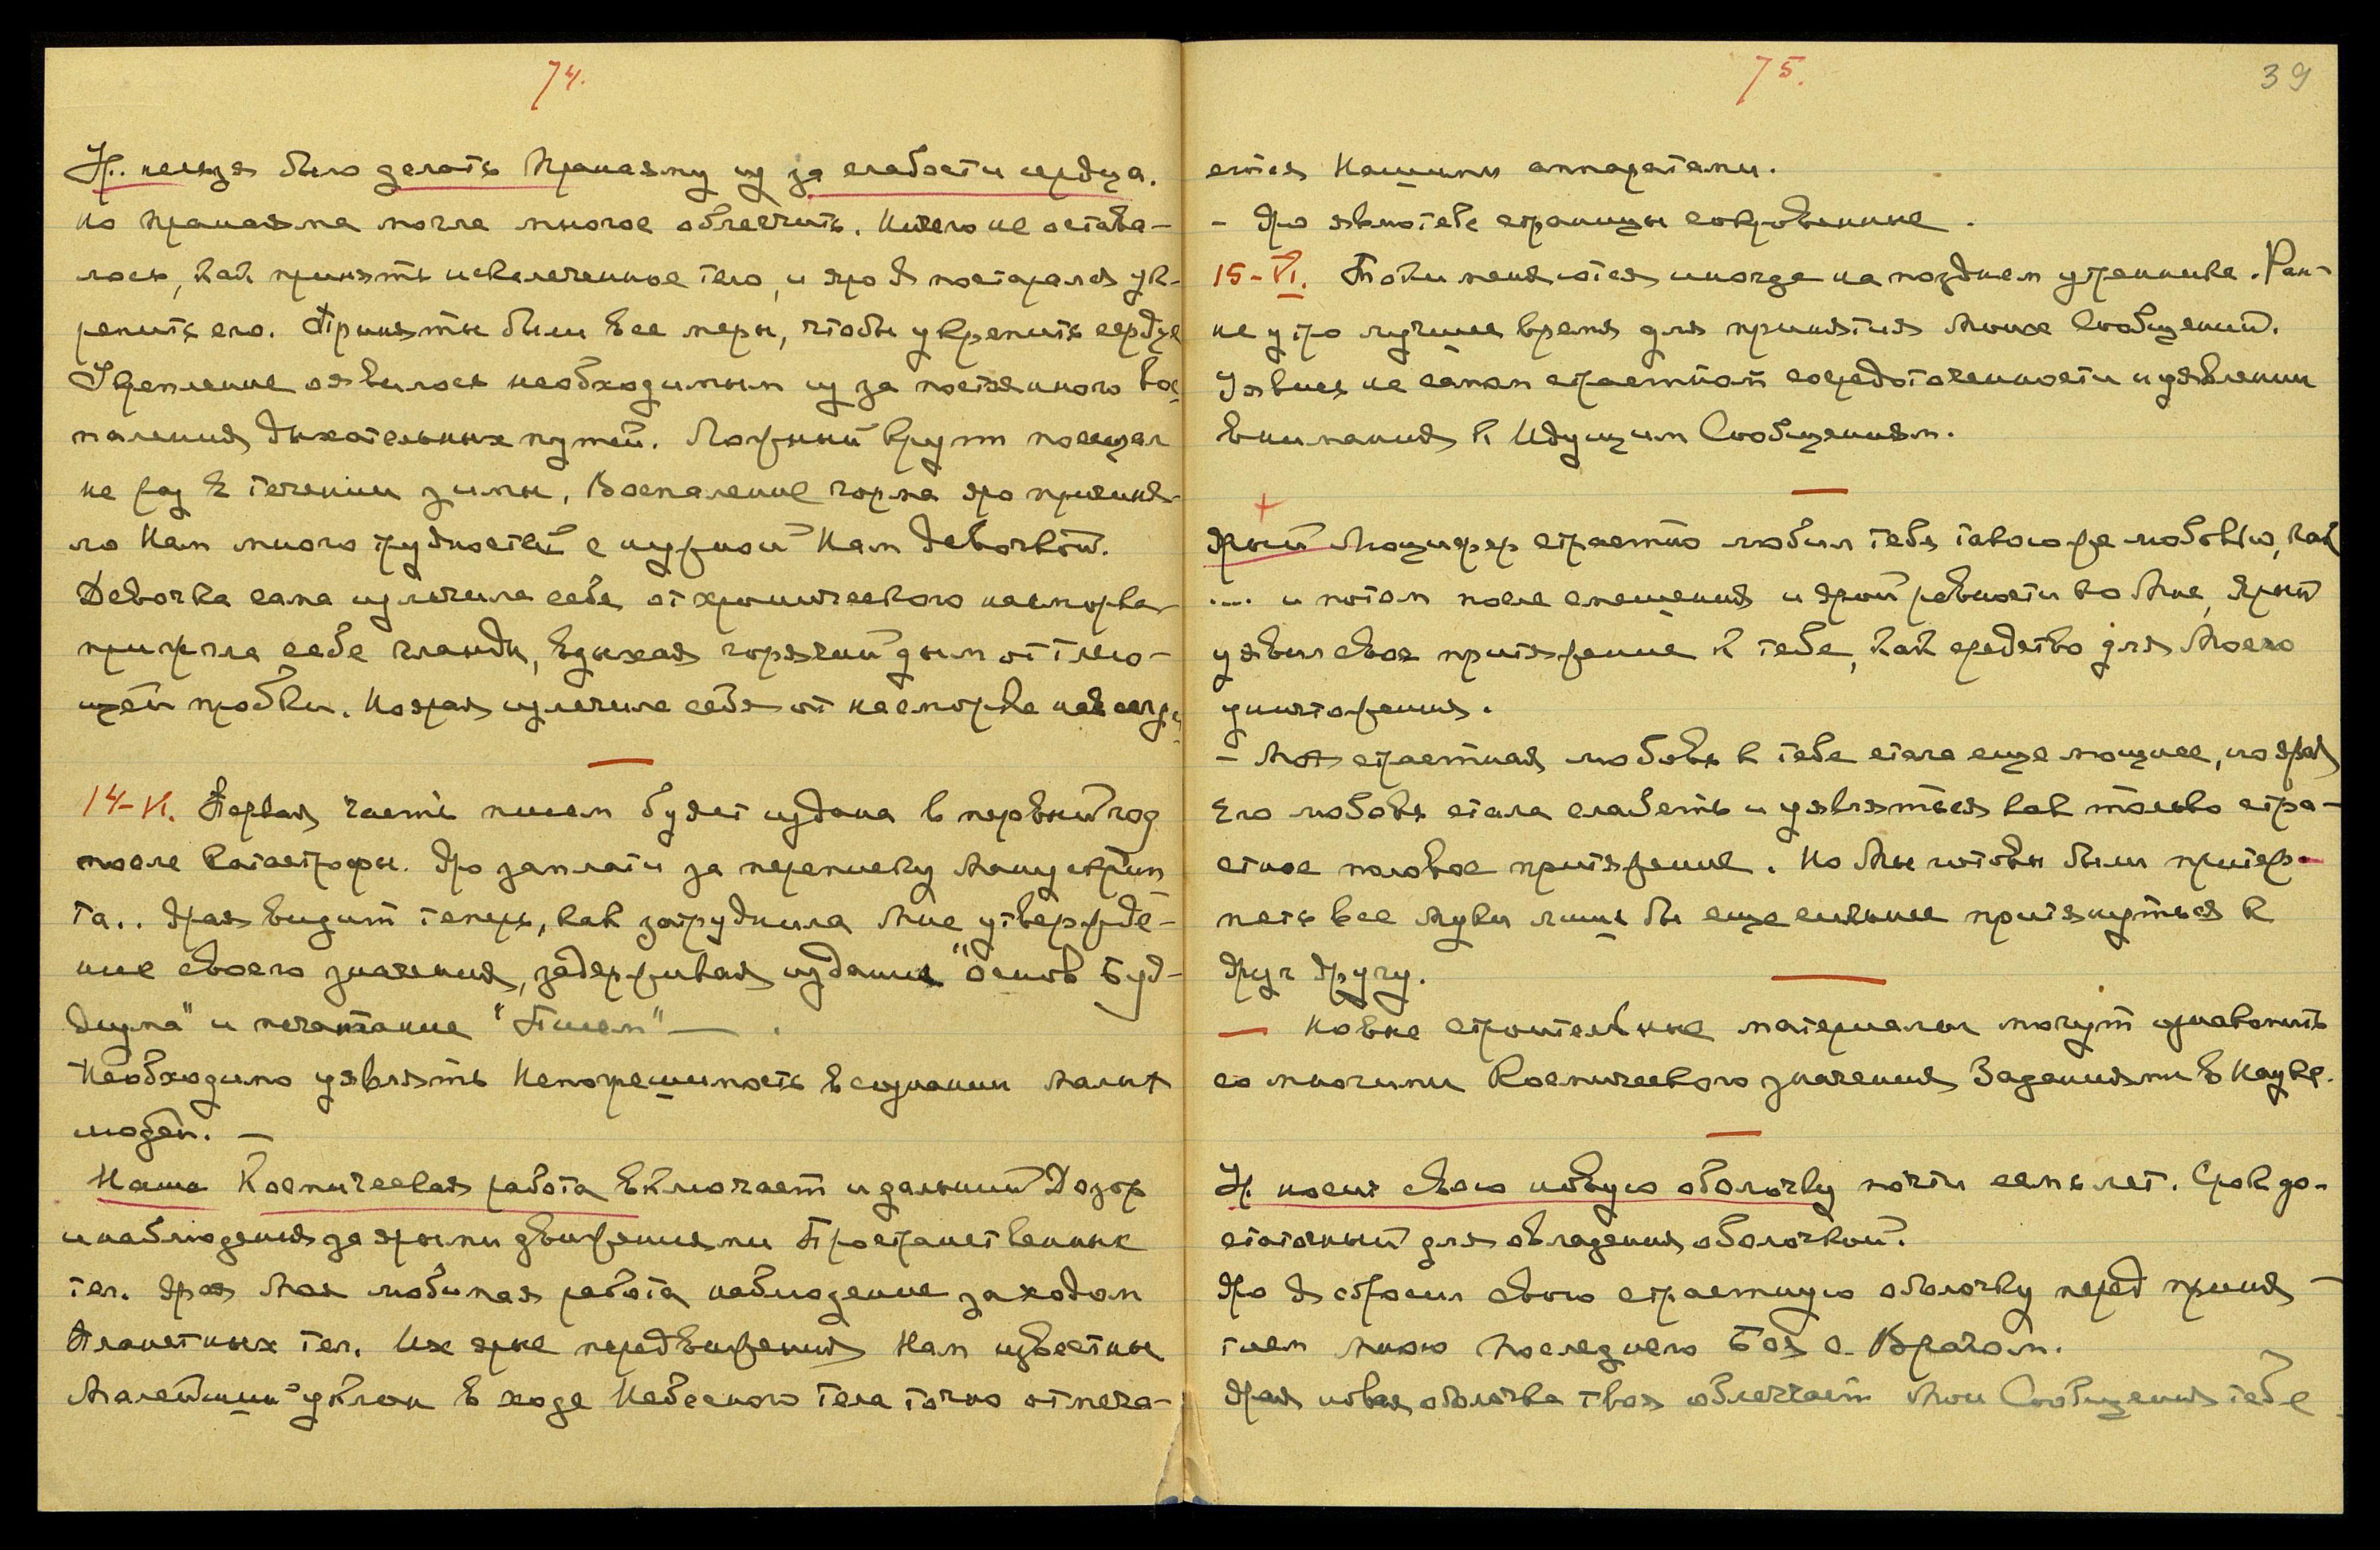 74.
У. нельзя было делать Пранаяму из за слабости сердца.
но пранаяма могла многое облегчить. Ничего не остава-
лось, как принять искалеченное тело, и яро Я постарался ук-
репить его. Приняты были все меры, чтобы укрепить сердце
Укрепление оявилось необходимым из за постоянного вос-
паления дыхательных путей. Ложный круп посещал
не раз в течении зимы, Воспаление горла яро причиня-
ло Нам много трудностей с нужной Нам девочкой.
Девочка сама излечила себя от хронического насморка
прижгла себе гланды, вдыхая горячий дым от тлею-
щей пробки. Но ярая излечила себя от насморка навсегда
14-VI. Первая часть писем будет издана в первый год
после катастрофы. Яро заплати за переписку Манускрип-
та.. Ярая видит теперь, как затруднила Мне утвержде-
ние своего значения, задерживая издание "Основ Буд-
дизма" и печатание "Писем" — .
Необходимо уявлять Непогрешимость в сознании малых
людей. —
Наша Космическая работа включает и дальний Дозор
и наблюдения за ярыми движениями Пространственных
тел. Ярая Моя любимая работа наблюдение за ходом
Планетных тел. Их ярые передвижения Нам известны
Малейший уклон в ходе Небесного тела точно отмеча-
75.
39
ется Нашими аппаратами.
- Яро явлю тебе страницы сокровенные.
15-VI. Токи меняются иногда на позднем утреннике. Ран-
не утро лучшее время для принятия Моих Сообщений.
Уявись на самой страстной сосредоточенности и уявлении
внимания к Идущим Сообщениям.
+
Ярый Люцифер страстно любил тебя такою же любовью, как
.... и потом после смещения и ярой ревности ко Мне, Ярый
уявил свое притяжение к тебе, как средство для Моего
уничтожения.
- Моя страстная любовь к тебе стала еще мощнее, но ярая
Его любовь стала слабеть и уявляться как только стра-
стное половое притяжение. Но Мы готовы были притер-
петь все муки лишь бы еще сильнее притянуться к
друг другу.
— Новые строительные материалы могут ознакомить
со многими Космического значения Заданиями в Науке.
У. носит свою новую оболочку почти семь лет. Срок до-
статочный для овладения оболочкой.
Яро Я сбросил свою страстную оболочку перед приня-
тием Мною Последнего Боя с Врагом.
Ярая новая оболочка твоя облегчает Мои Сообщения тебе